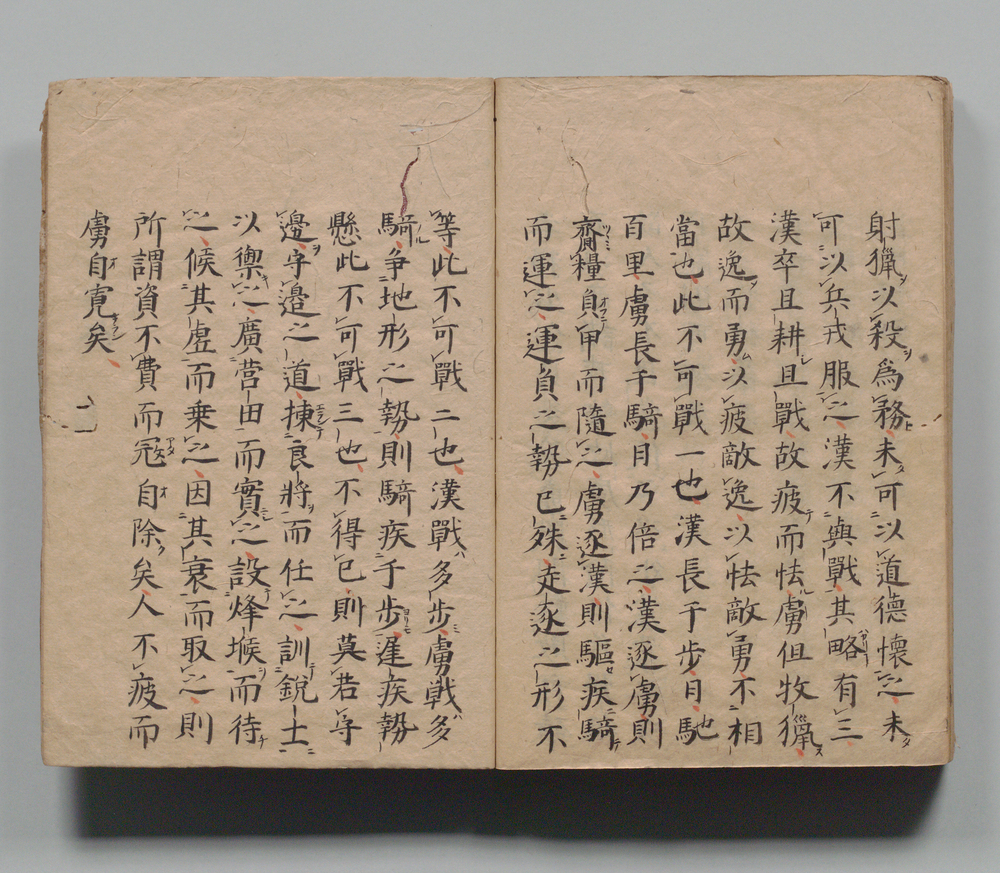 射獵以殺為務未可以道德懷之未
可以兵戎服之漢不與戰其略有三
漢卒且耕且戰故疲而怯虜但牧獵
故逸而勇以疲敵逸以怯敵勇不相
當也此不可戰一也漢長于步日馳
百里虜長于騎日乃倍之漢逐虜則
齎糧負甲而隨之虜逐漢則驅疾騎
而運之運負之勢已殊走逐之形不
等此不可戰二也漢戰多步虜戰多
騎争地形之勢則騎疾于步遲疾勢
懸此不可戰三也不得已則莫若守
邊守邊之道揀良將而任之訓銳士
以禦之廣营田而實之設烽堠而待
之候其虛而乘之因其衰而取之則
所謂資不費而冦自除矣人不疲而
虜自寬矣